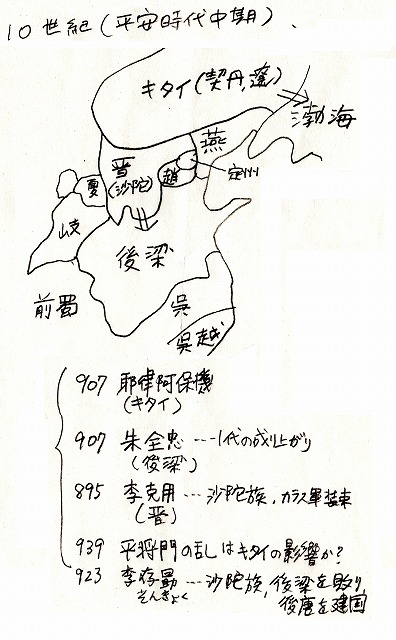 10世紀(平安時代中期).
キタイ(契丹,遼)
渤海
燕
晋
(沙陀)
趙
定州
夏
岐
後梁
前蜀
呉
呉越
907 耶律阿保機
(キタイ)
907 朱全忠…一代の成り上がり
(後梁)
895 李克用…沙陀族,カラス軍装束
(晋)
939 平将門の乱はキタイの影響か?
923 李存勗…沙陀族,後梁を敗り
そんきょく 後唐を建国